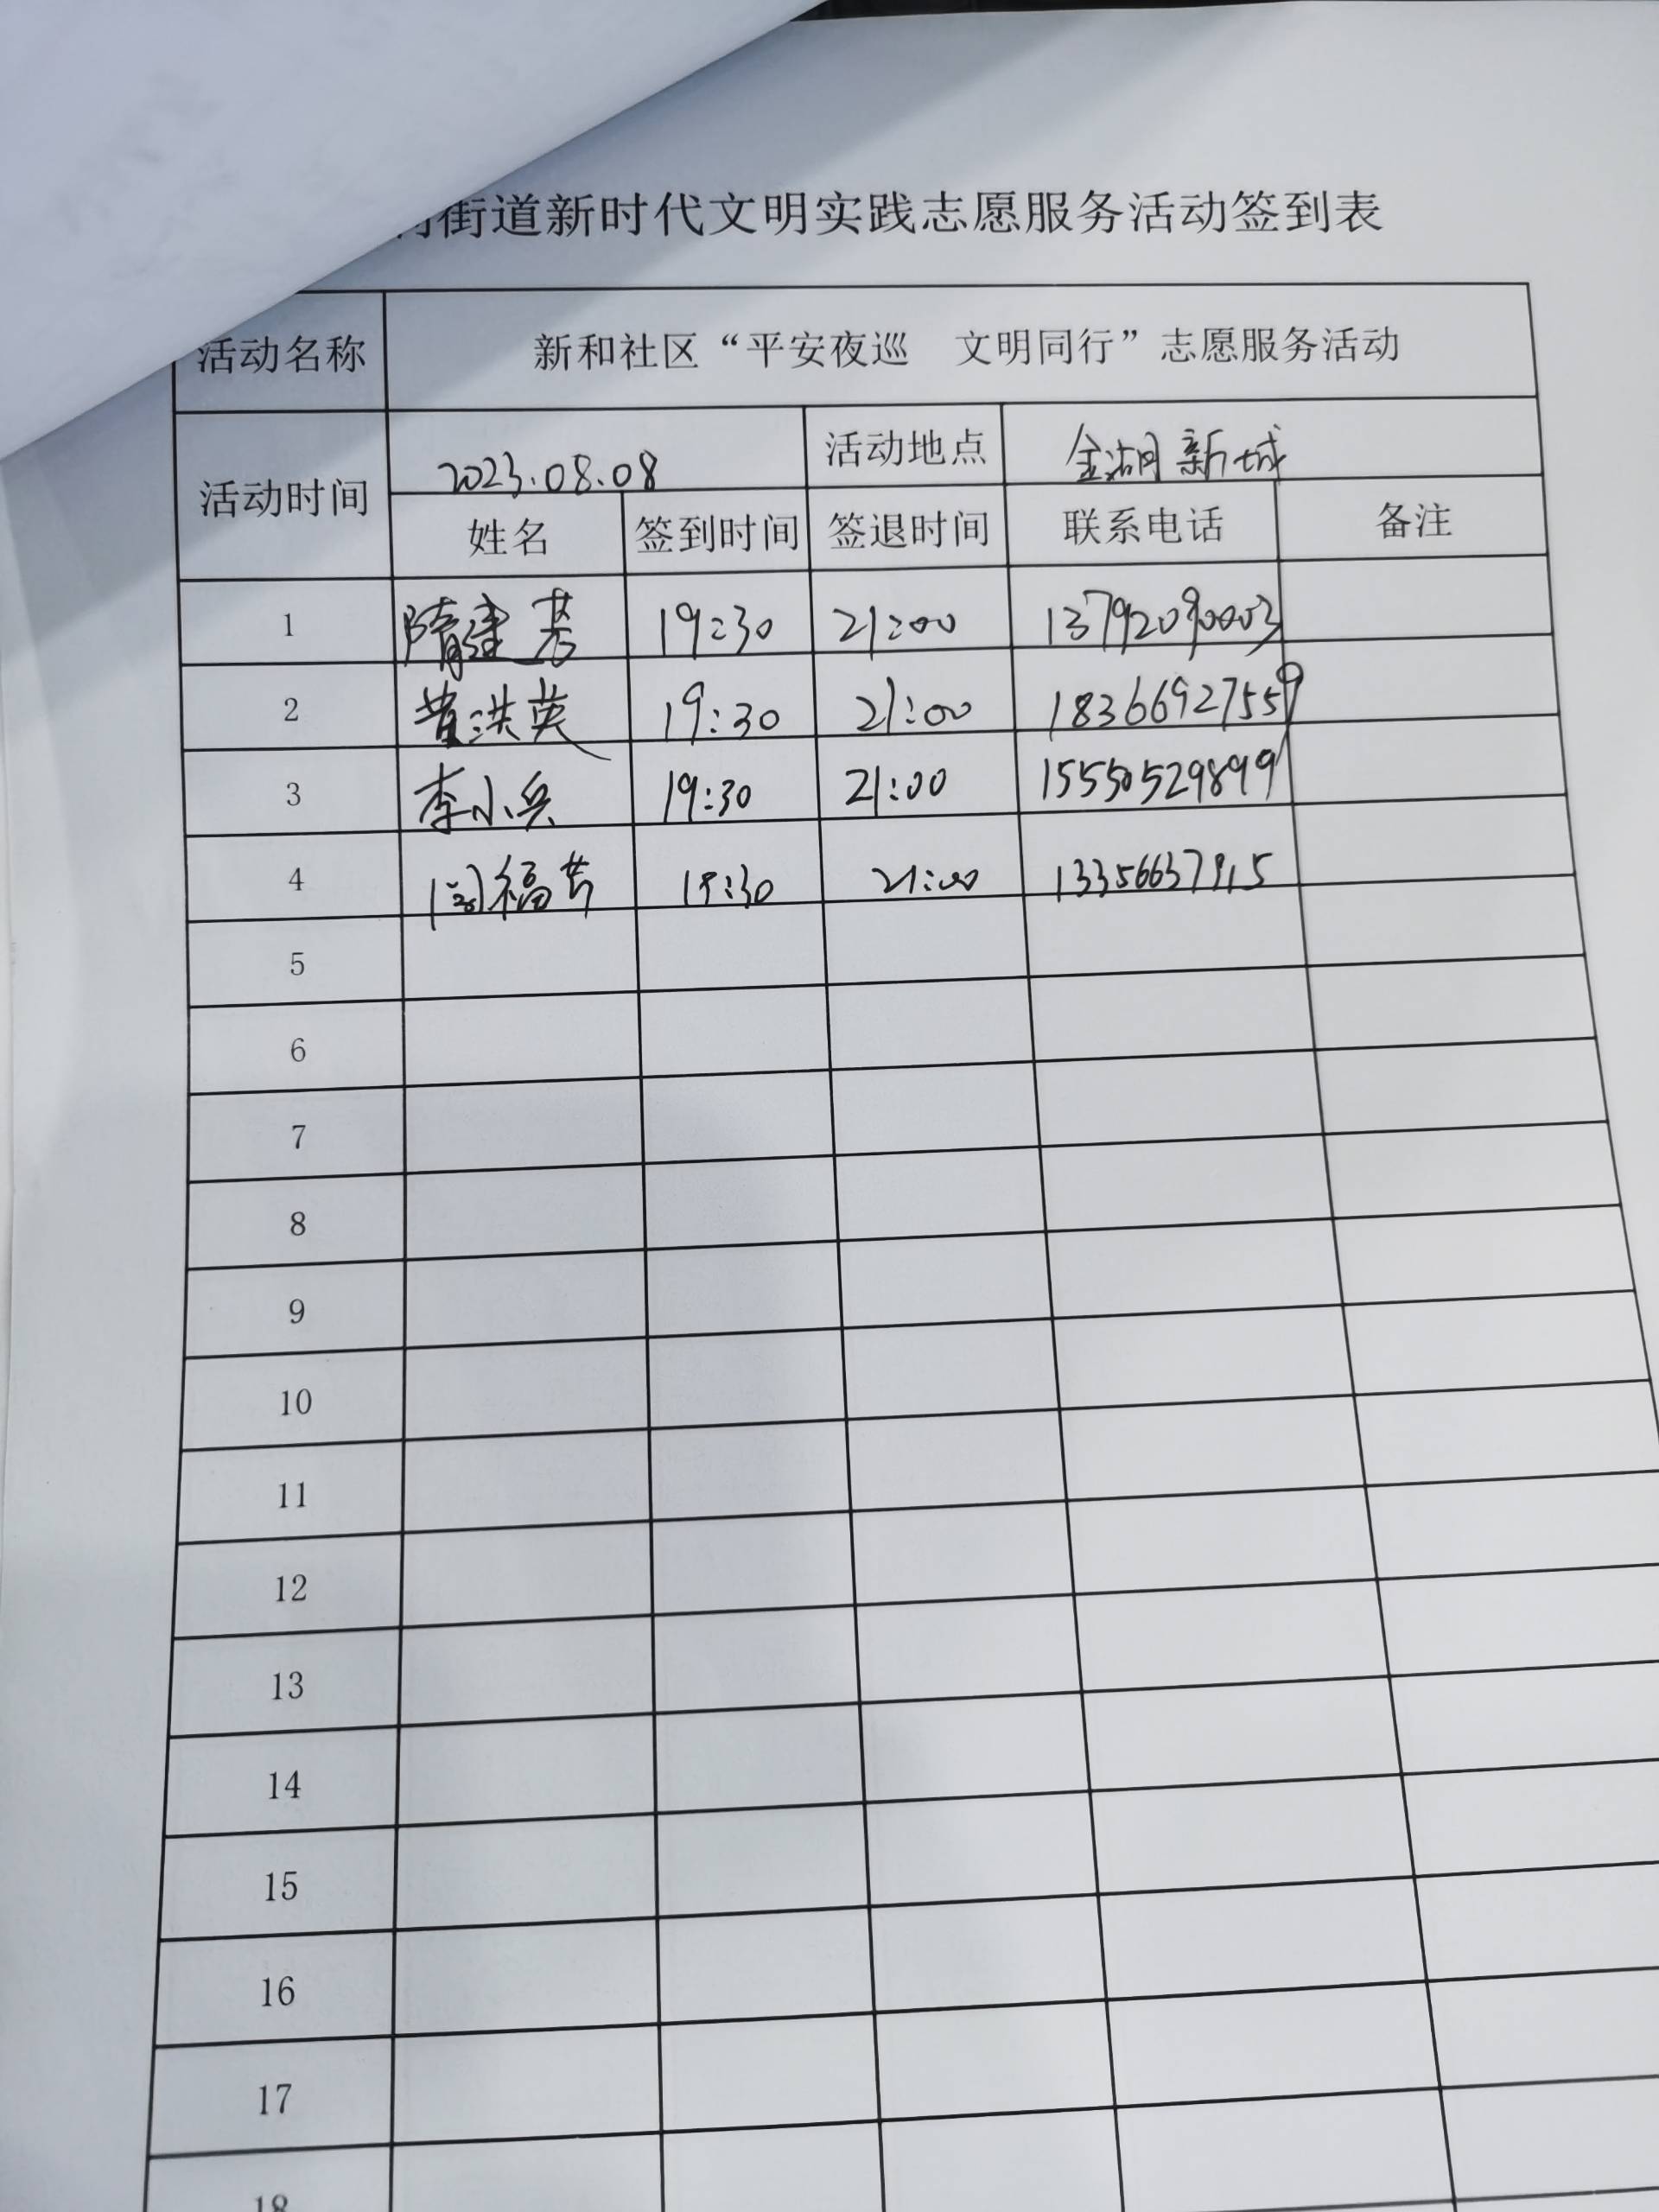 街道新时代文明实践志愿服务活动签到表
活动名称 新和社区“平安夜巡 文明同行”志愿服务活动
活动时间 2023.08.08 活动地点 金湖新城
姓名 签到时间 签退时间 联系电话 备注
1 隋建芳 19:30 21:00 13792090003
2 黄洪英 19:30 21:00 18366927559
3 李小兵 19:30 21:00 15550529899
4 福芳 19:30 21:00
5
6
7
8
9
10
11
12
13
14
15
16
17
18